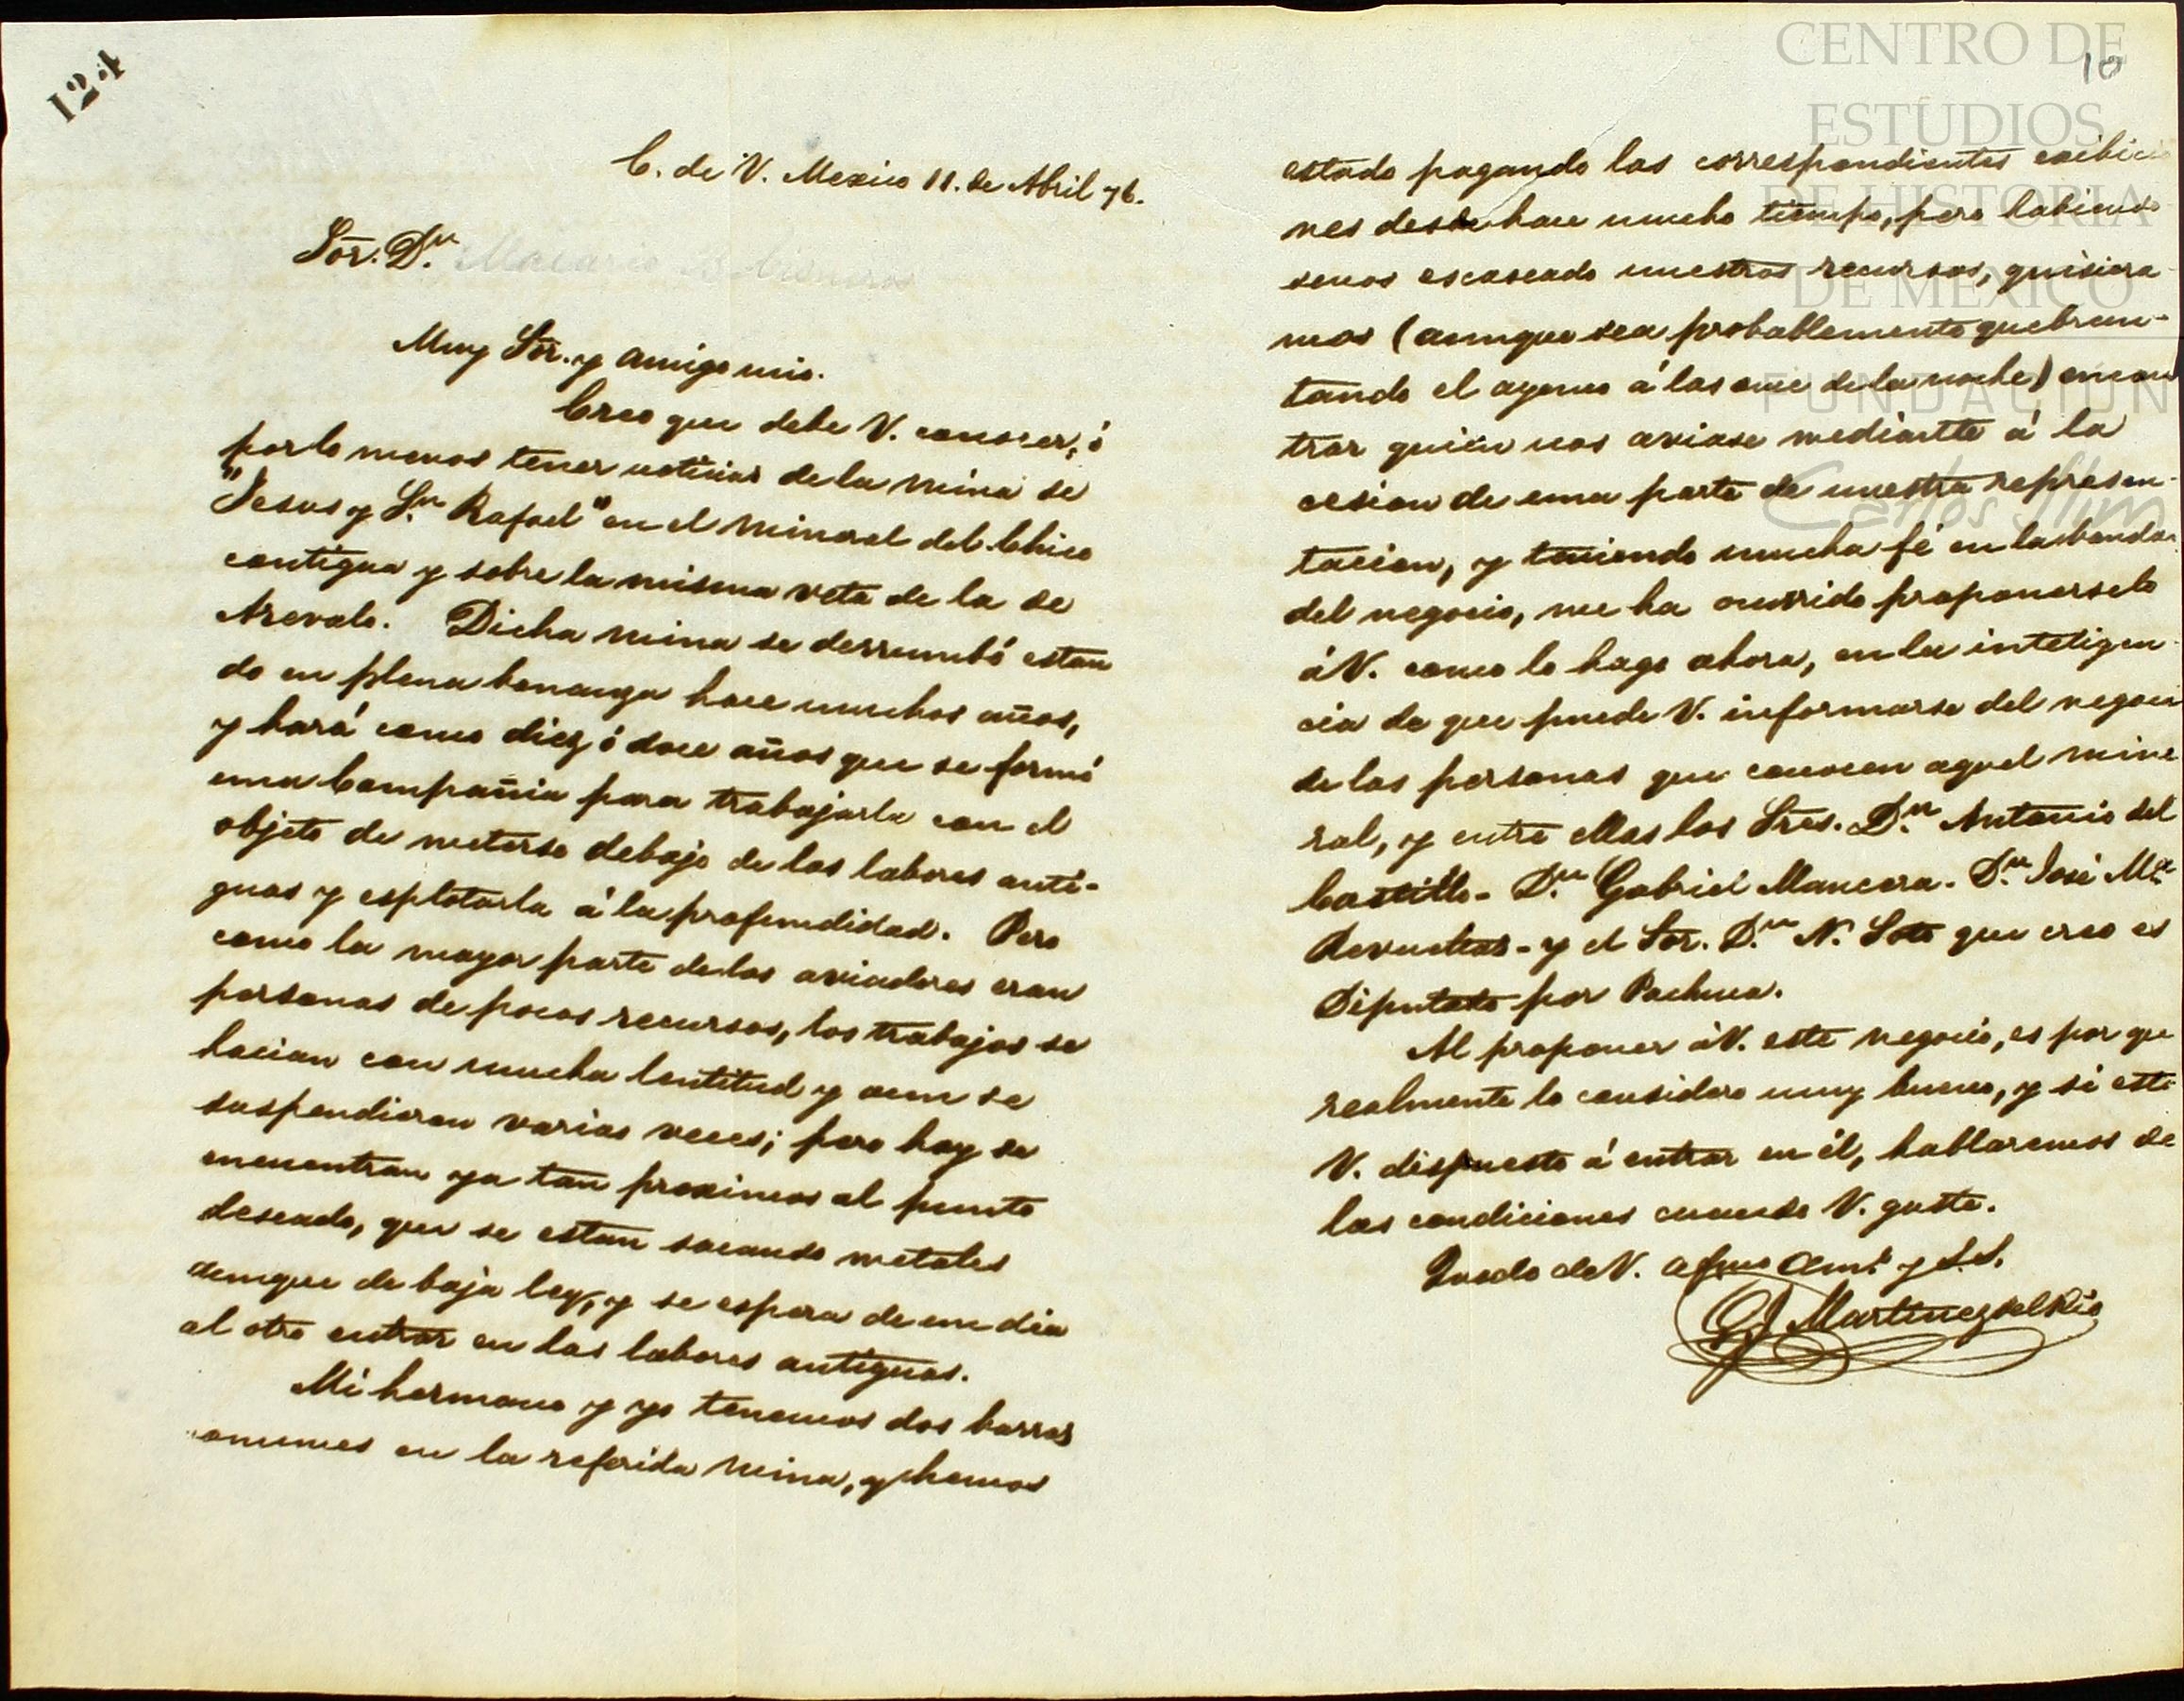 124
10
CENTRO DE
ESTUDIOS
DE HISTORIA
DE MEXICO
FUNDACION
Carlos Slim
C. de V. Mexico 11. de Abril 76.
Sor. Dn. Macario
Muy Sor. y amigo mio.
Creo que debe V. conocer, ó
por lo menos tener noticias de la mina de
"Jesus y Sn. Rafael" en el Mineral del Chico
contigua y sobre la misma veta de la de
Arevalo. Dicha mina se derrumbó estan
do en plena bonanza hace muchos años,
y hará como diez ó doce años que se formó
una Compañia para trabajarla con el
objeto de meterse debajo de las labores anti-
guas y esplotarla á la profundidad. Pero
como la mayor parte de los aviadores eran
personas de pocos recursos, los trabajos se
hacian con mucha lentitud y aun se
suspendieron varias veces; pero hoy se
encuentran ya tan proximos al punto
deseado, que se estan sacando metales
aunque de baja ley, y se espera de un dia
al otro entrar en las labores antiguas.
Mi hermano y yo tenemos dos barras
comunes en la referida mina, y hemos
estado pagando las correspondientes exibicio
nes desde hace mucho tiempo, pero habiendo
senos escaseado nuestros recursos, quisiera-
mos (aunque sea probablemente quebran-
tando el ayuno á las once de la noche) encon
trar quién nos aviase mediantte á la
cesion de una parte de nuestra represen-
tacion, y teniendo mucha fé en las bondades
del negocio, me ha ocurrido proponerselo
á V. como lo hago ahora, en la inteligen-
cia de que puede V. informarse del negocio
de las personas que conocen aquel mine
ral, y entre ellas los Sres. Dn. Antonio del
Castillo - Dn. Gabriel Mancera. Dn. José Ma.
Revueltas - y el Sor. Dn. N. Soto que creo es
Diputado por Pachuca.
Al proponer á V. este negocio, es por que
realmente lo considero muy bueno, y si está
V. dispuesto á entrar en él, hablaremos de
las condiciones cuando V. guste.
Quedo de V. afmo Amo. y S.S.
Martinez del Rio